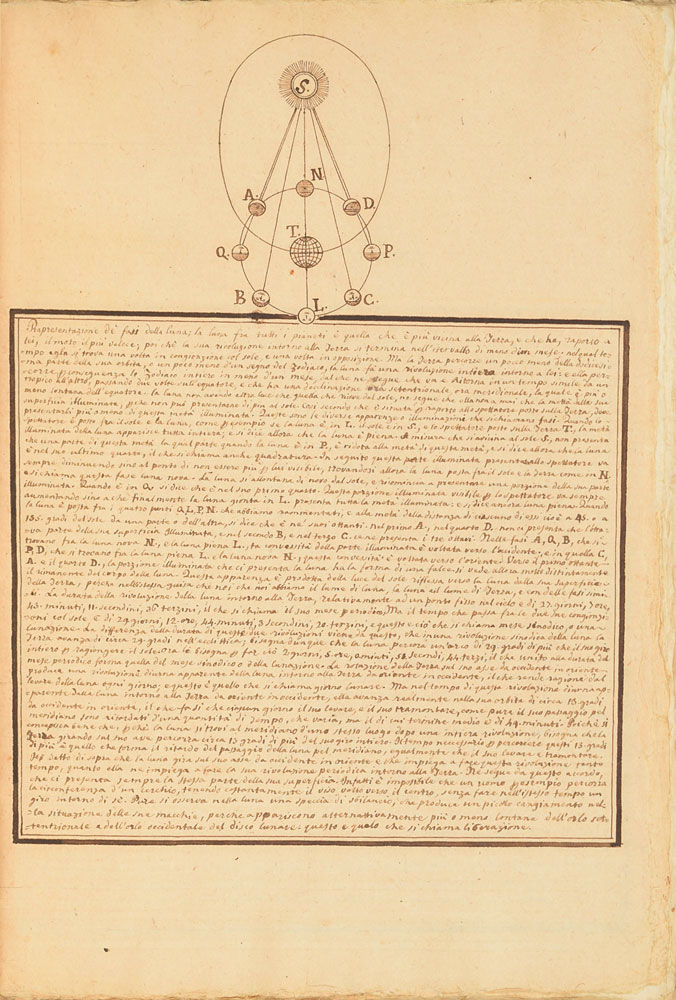 S.
N.
A.
D.
T.
Q.
P.
B
C.
L.
Rapresentazione de' fasi della luna; la luna fra tutti i pianeti è quella che è più vicina alla Terra, e che ha, raporto a
lei, il moto il più celere; poi chè la sua rivoluzione intorno alla Terra si termina nell'intervallo di meno d'un mese; nel qual te=
mpo ella si trova una volta in congionzione col sole, e una volta in opposizione. Ma la Terra percorre un poco meno della dodicesi=
ma parte della sua orbita, o un poco meno d'un segno del Zodiaco, la luna fà una rivoluzione intiera intorno a lei: e
corre, p conseguenza lo Zodiaco intiero in meno d'un mese, tal che ne segue, che va e ritorna in un tempo simile da un
tropico all'altro, passando due volte sull' equatore, e che ha una declinazione ora setentrionale, ora meridionale, la quale è più o
meno lontana dell'equatore. la luna non avendo altra luce che quella che riceve dal sole, ne segue che
superficie illuminata, p che non può presentarne di più al sole.
presentarli più ò meno di questa metà illuminata. Queste sono le diverse apparenze o illuminazioni che si chiamano fasi. Quando lo
spettatore è posto fra il sole e la luna, come p esempio se la luna è in L. il sole è in S., e lo spettatore posto sulla Terra T; la metà
illuminata della luna apparisce tutta intiera; e si dice allora che la luna è piena. A misura che si avicina al sole S, non presenta
che una parte di questa metà la qual parte quando la luna è in P, è ridotta alla metà di questa metà, e si dice allora che la luna
è nel suo ultimo quarto, il che si chiama anche quadratura. In seguito questa parte illuminata presente allo spettatore va
sempre diminuendo sino al ponto di non essere più p lui visibile, trovandosi allora la luna posta fra il sole e la Terra come in N.
e si chiama questa fase luna nova. La luna si allontana di novo dal sole, e ricomincia a presentare una porzione della sua parte
illuminata: Quando è in Q. si dice che è nel suo primo quarto. Questa porzione illuminata visibile p lo spettatore va sempre
aumentando sino a che finalmente la luna gionta in L. presenta tutta la metà illuminata; e si dice ancora luna piena. Quando
la luna è posta fra i quatro punti Q, L, P, N. che abbiamo rammentati, e alla metà della distanza di ciascuno di essi cioè à 45. o a
135. gradi del sole da una parte o dell'altra, si dice che è ne' suoi ottanti. nel primo A, nel quarto D. non ci presenta che l'otta=
va parte della sua superficie illuminata, e nel secondo B, e nel terzo C. ce ne presenta i tre ottavi. Nelle fasi A, Q, B, che si
trovano fra la luna nova N, e la luna piena L, la convessità della parte illuminata è voltata verso l'occidente, e in quella C,
P, D, che si trovano fra la luna piena L, e la luna nova N, questa convessità è voltata verso l'oriente. Verso il primo ottante
A. e il quarto D, la porzione illuminata che ci presenta la luna ha la forma di una falce. si vede allora molto distintamente
il rimanente del corpo della luna. Questa apparenza è prodotta della luce del sole riflessa verso la luna dalla sua superficie
della Terra, perchè nell'istessa guisa che noi, che noi abbiamo il lume di luna, la luna ha il lume di Terra, e con delle fasi simi=
li. La durata della rivoluzione della luna intorno alla Terra, relativamente ad un ponto fisso nel cielo è di 27. giorni, 7 ore,
43. minuti, 11. secondi, 36 terzini, il che si chiama il suo mese periodico. Ma il tempo che passa fra le due sue congionzi=
oni col sole è di 29 giorni, 12. ore, 44. minuti, 3 secondi, 20. terzini, e questo è ciò che si chiama mese sinodico, o una
lunazione. La differenza della durata di queste due rivoluzioni viene da questo, che in una rivoluzione sinodica della luna la
Terra avanza di circa 29. gradi nell'eclittica; bisogna dunque che la luna percorra un'arco di 29 gradi di più che il suo giro
intiero p ragiongere il sole. Ora le bisogna p far ciò 2 giorni, 5 ore, 0 minuti, 52 secondi, 44. terzi, il che unito alla durata del
mese periodico forma quella del mese sinodico o della lunazione. La rotazione della Terra sul suo asse da occidente in oriente
produce una rivoluzione diurna apparente della luna intorno alla Terra da oriente in occidente, il che rende ragione dal
levare della luna ogni giorno; e questo è quello che si chiama giorno lunare. Ma nel tempo di questa rivoluzione diurna ap=
parente della luna intorno alla Terra da oriente in occidente, ella avanza realmente nella sua orbita di circa 13 gradi
da occidente in oriente, il che fa si che ciascun giorno il suo levare, e il suo tramontare, come pure il suo passaggio pel
meridiano sono ritardati d'una quantità di tempo, che varia, ma il di cui termine medio è di 49. minuti. Poichè si
concepisce bene che, p chè la luna si trovi al meridiano d'uno stesso luogo dopo una intiera rivoluzione, bisogna che la
Terra girando sul suo asse percorra circa 13 gradi di più del suo giro intiero. Il tempo necessario p percorrere questi 13. gradi
di più è quello che forma il ritardo del passaggio della luna pel meridiano; egualmente che, il suo levare e tramontare.
Si è detto di sopra che la luna gira sul suo asse da occidente in oriente e che impiega a fare questa rivoluzione, tanto
tempo, quanto ella ne impiega a fare la sua rivoluzione periodica intorno alla Terra. Ne segue da questo accordo,
che ci presenta sempre la stessa parte della sua superficie. Infatti è impossibile che un uomo p esempio percorra
la circonferenza d'un cerchio, tenendo costantemente il viso volto verso il centro, senza fare nell'istesso tempo un
giro intorno di se. Pure si osserva nella luna una specie di sbilancio, che produce un picolo cangiamento nel=
=la situazione delle sue macchie, perchè appariscono alternativamente più o meno lontane dall'orlo sete
tentrionale e dell'orlo occidentale del disco lunare. questo è quelo che si chiama liberazione.